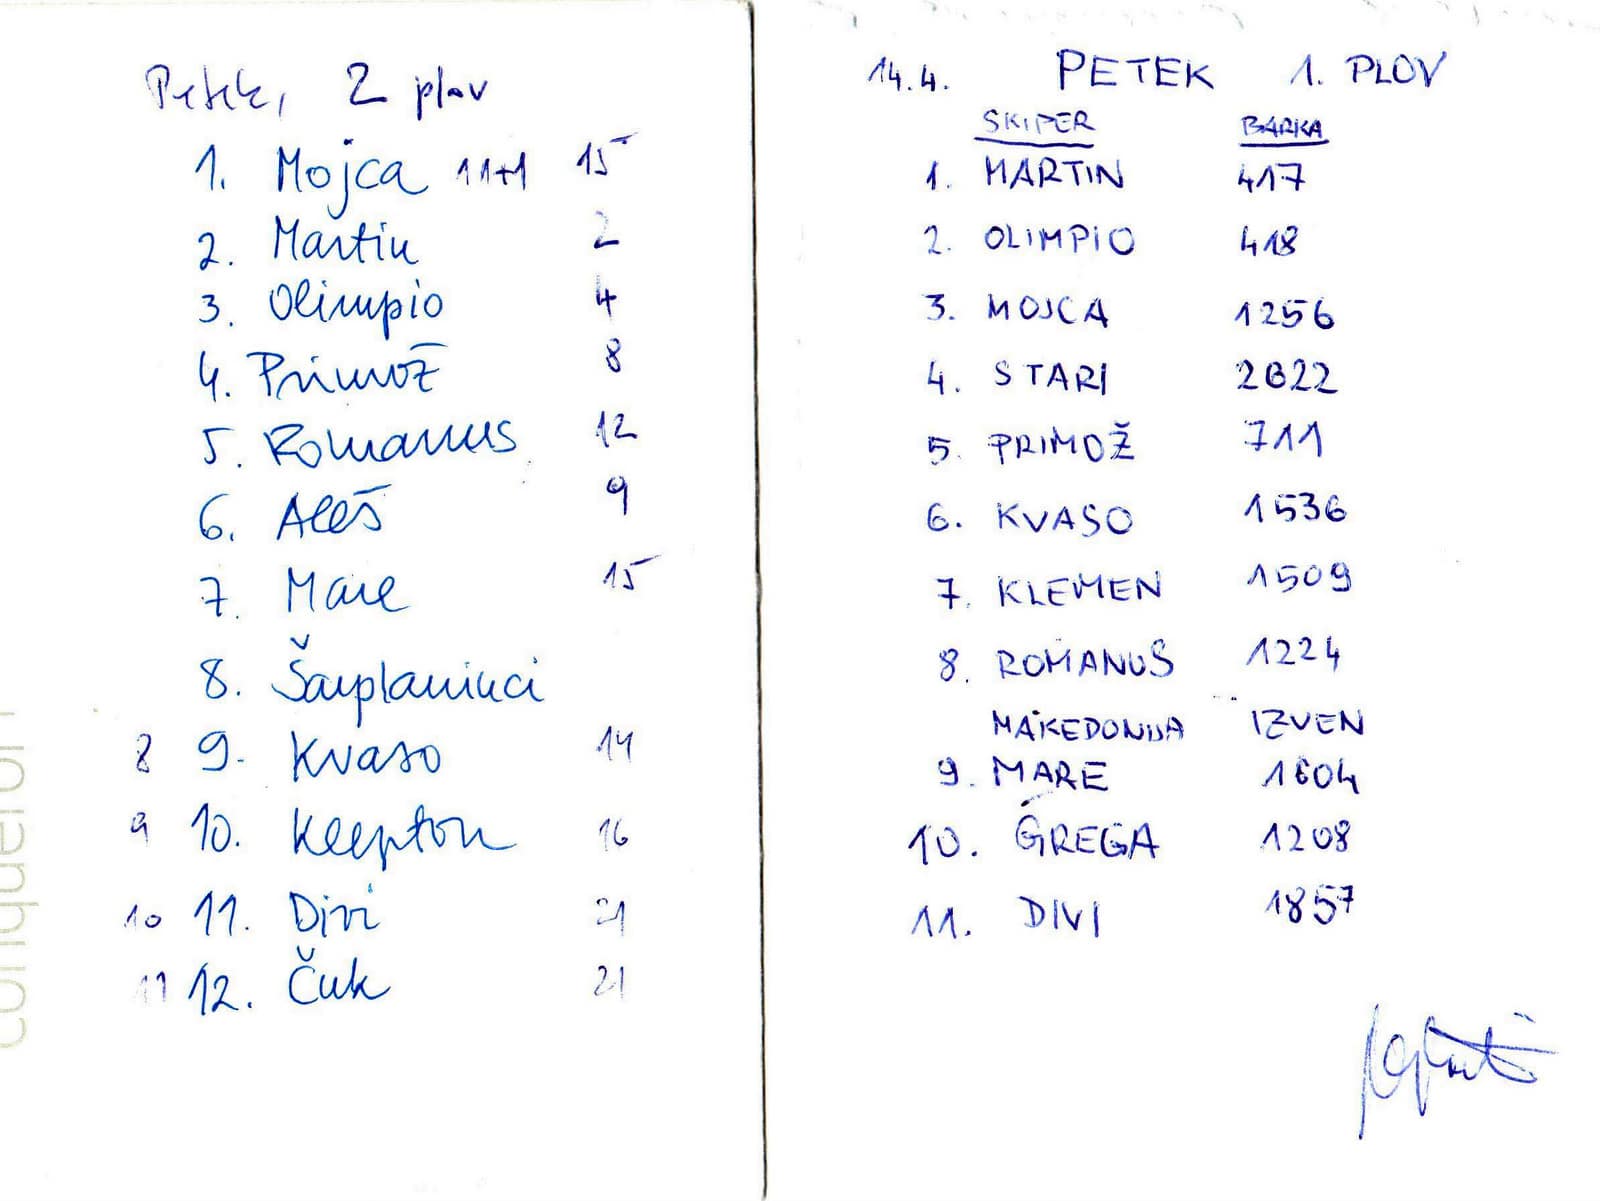 Petek, 2 plov
1. Mojca 11+1 15
2. Martin 2
3. Olimpio 4
4. Primož 8
5. Romanus 12
6. Aleš 9
7. Mare 15
8. Šarplaninci
8 9. Kvaso 14
9 10. Klepton 16
10 11. Divi 21
11 12. Čuk 21
conqueror
14.4. PETEK 1. PLOV
SKIPER BARKA
1. MARTIN 417
2. OLIMPIO 418
3. MOJCA 1256
4. STARI
5. PRIMOŽ 711
6. KVASO 1536
7. KLEMEN 1509
8. ROMANUS 1224
MAKEDONIJA IZVEN
9. MARE 1604
10. GREGA 1208
11. DIVI 1857